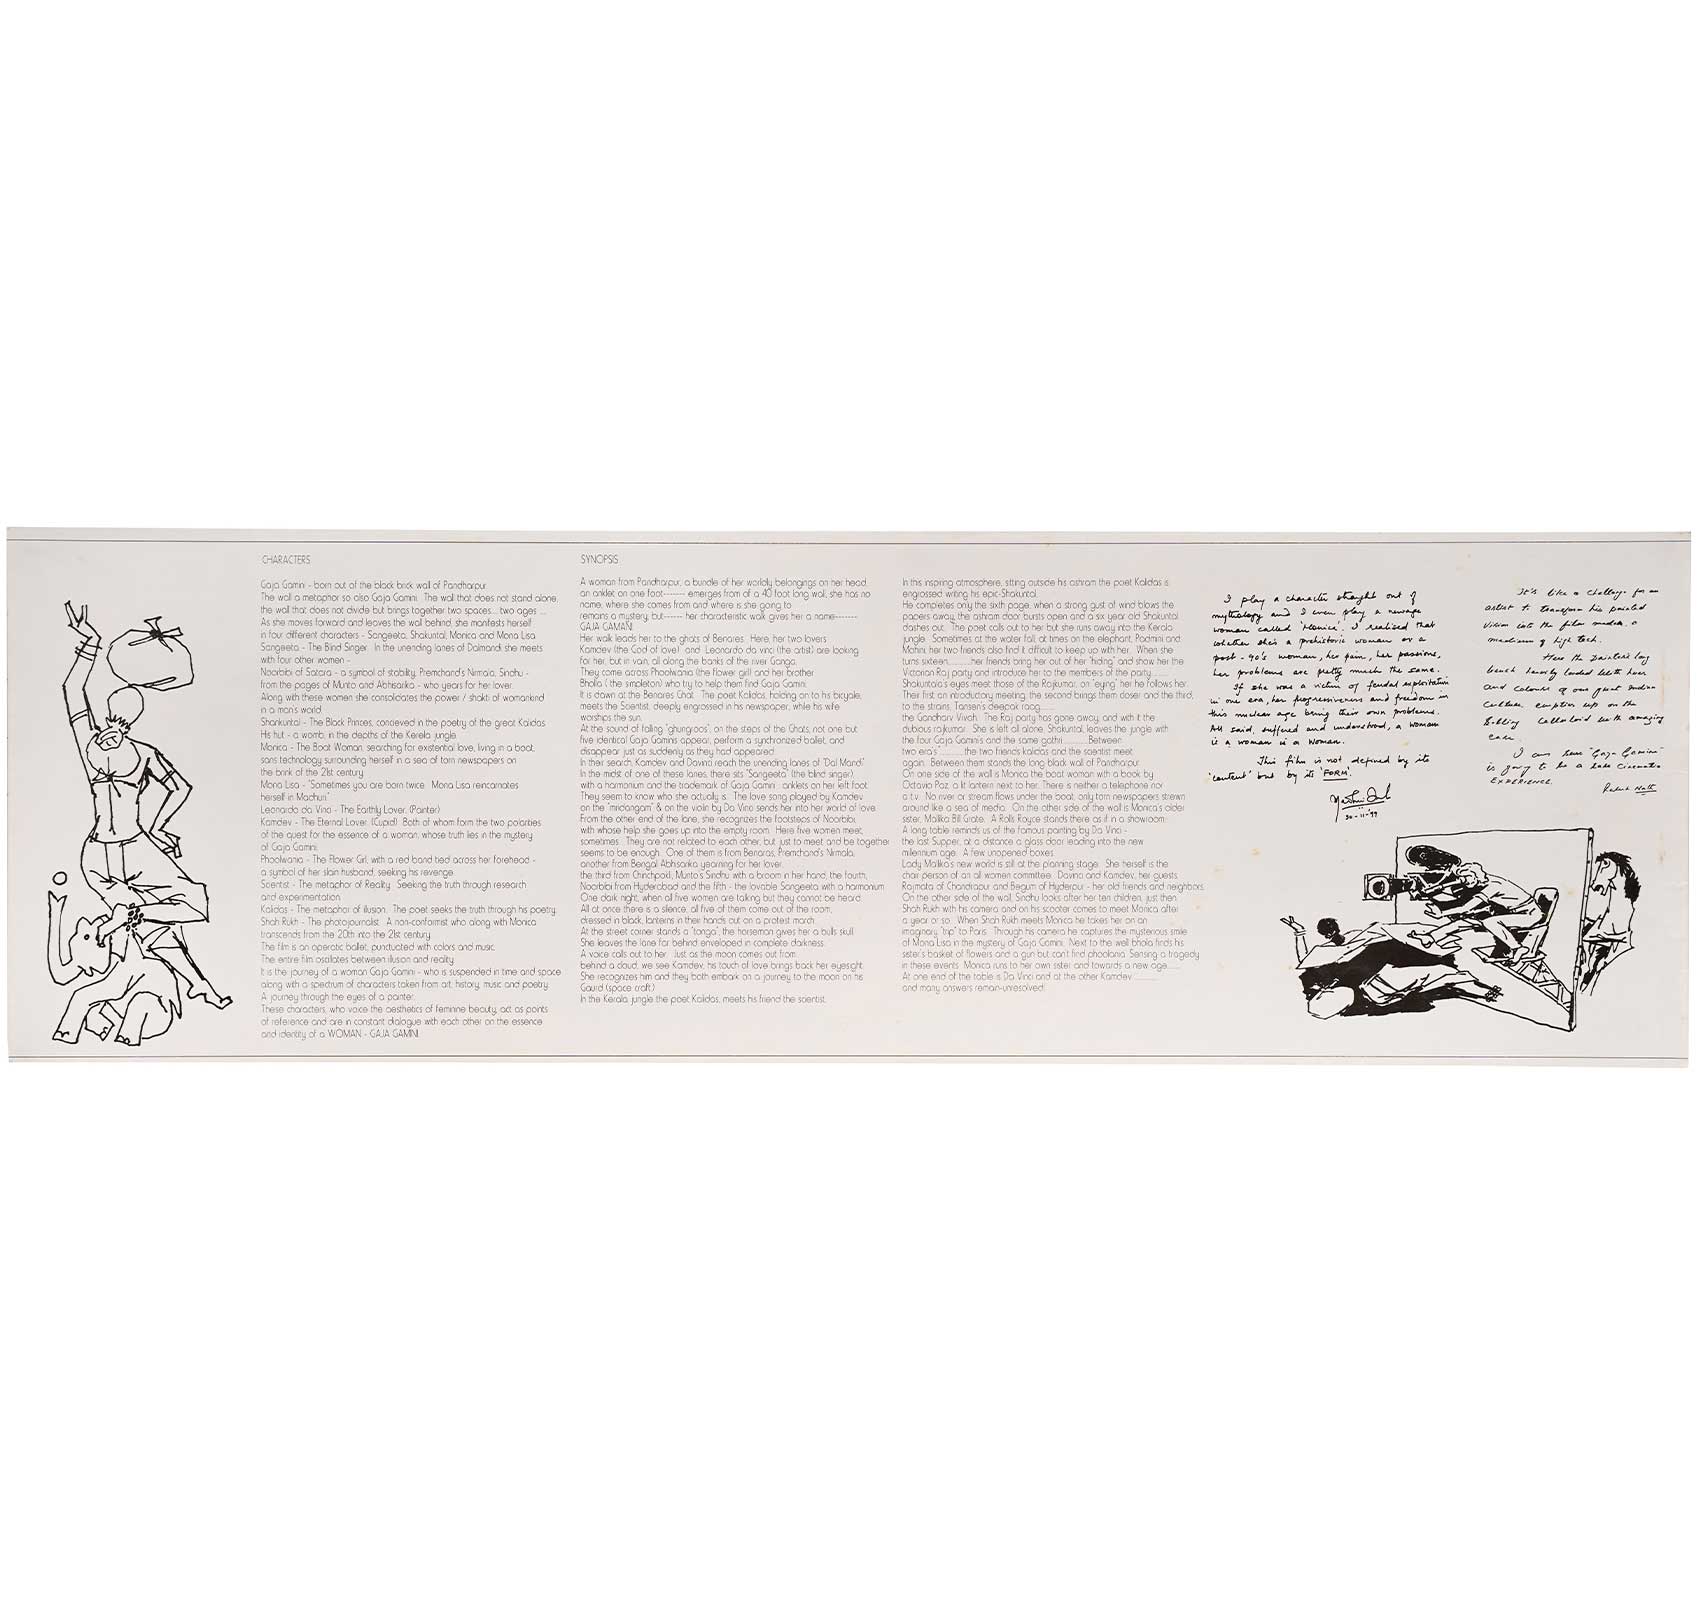 CHARACTERS
Gaja Gamini - born out of the black brick wall of Pandharpur
The wall a metaphor so also Gaja Gamini. The wall that does not stand alone,
the wall that does not divide but brings together two spaces.....two ages ....
As she moves forward and leaves the wall behind, she manifests herself
in four different characters - Sangeeta, Shakuntal, Monica and Mona Lisa
Sangeeta - The Blind Singer. In the unending lanes of Dalmandi she meets
with four other women -
Noorbibi of Satara - a symbol of stability, Premchand's Nirmala, Sindhu -
from the pages of Munto and Abhisarika - who years for her lover.
Along with these women she consolidates the power / shakti of womankind
in a man's world.
Shankuntal - The Black Princes, concieved in the poetry of the great Kalidas
His hut - a womb, in the depths of the Kerela jungle.
Monica - The Boat Woman, searching for existential love, living in a boat,
sans technology surrounding herself in a sea of torn newspapers on
the brink of the 21st century
Mona Lisa - "Sometimes you are born twice. Mona Lisa reincarnates
herself in Madhuri."
Leonardo da Vinci - The Earthly Lover, (Painter)
Kamdev - The Eternal Lover, (Cupid). Both of whom form the two polarities
of the quest for the essence of a woman, whose truth lies in the mystery
of Gaja Gamini.
Phoolwania - The Flower Girl, with a red band tied across her forehead -
a symbol of her slain husband, seeking his revenge.
Scientist - The metaphor of Reality. Seeking the truth through research
and experimentation.
Kalidas - The metaphor of illusion. The poet seeks the truth through his poetry.
Shah Rukh - The photojournalist. A non-conformist who along with Monica
transcends from the 20th into the 21st century.
The film is an operatic ballet, punctuated with colors and music.
The entire film osillates between illusion and reality.
It is the journey of a woman Gaja Gamini - who is suspended in time and space
along with a spectrum of characters taken from art, history, music and poetry.
A journey through the eyes of a painter.
These characters, who voice the aesthetics of feminine beauty, act as points
of reference and are in constant dialogue with each other on the essence
and identity of a WOMAN - GAJA GAMINI.
SYNOPSIS
A woman from Pandharpur, a bundle of her worldly belongings on her head,
an anklet on one foot------- emerges from of a 40 foot long wall, she has no
name, where she comes from and where is she going to
remains a mystery but------ her characteristic walk gives her a name-------
GAJA GAMANI.
Her walk leads her to the ghats of Benares. Here, her two lovers
Kamdev (the God of love) and Leonardo da vinci (the artist) are looking
for her, but in vain, all along the banks of the river Ganga.
They come across Phoolwania (the flower girl) and her brother
Bholla ( the simpleton) who try to help them find Gaja Gamini.
It is dawn at the Benares Ghat. The poet Kalidas, holding on to his bicycle,
meets the Scientist, deeply engrossed in his newspaper, while his wife
worships the sun.
At the sound of falling "ghungroos", on the steps of the Ghats, not one but
five identical Gaja Gaminis appear, perform a synchronized ballet, and
disappear just as suddenly as they had appeared.
In their search, Kamdev and Davinci reach the unending lanes of 'Dal Mandi.'
In the midst of one of these lanes, there sits "Sangeeta" (the blind singer),
with a harmonium and the trademark of Gaja Gamini : anklets on her left foot.
They seem to know who she actually is. The love song played by Kamdev
on the "mridangam" & on the violin by Da Vinci sends her into her world of love.
From the other end of the lane, she recognizes the footsteps of Noorbibi,
with whose help she goes up into the empty room. Here five women meet,
sometimes. They are not related to each other, but just to meet and be together
seems to be enough. One of them is from Benaras, Premchand's Nirmala,
another from Bengal Abhisarika yearning for her lover,
the third from Chinchpokli, Munto's Sindhu with a broom in her hand, the fourth,
Noorbibi from Hyderabad and the fifth - the lovable Sangeeta with a harmonium
One dark night, when all five women are talking but they cannot be heard.
All at once there is a silence, all five of them come out of the room,
dressed in black, lanterns in their hands out on a protest march.
At the street corner stands a 'tonga', the horseman gives her a bulls skull.
She leaves the lane far behind enveloped in complete darkness.
A voice calls out to her. Just as the moon comes out from
behind a cloud, we see Kamdev, his touch of love brings back her eyesight.
She recognizes him and they both embark on a journey to the moon on his
Gaurd (space craft.)
In the Kerala jungle the poet Kalidas, meets his friend the scientist.
In this inspiring atmosphere, sitting outside his ashram the poet Kalidas is
engrossed writing his epic-Shakuntal.
He completes only the sixth page, when a strong gust of wind blows the
papers away, the ashram door bursts open and a six year old Shakuntal
dashes out. The poet calls out to her but she runs away into the Kerala
jungle. Sometimes at the water fall, at times on the elephant, Padmini and
Mohini her two friends also find it difficult to keep up with her. When she
turns sixteen...........her friends bring her out of her "hiding" and show her the
Victorian Raj party and introduce her to the members of the party........
Shakuntala's eyes meet those of the Rajkumar, on "eying" her he follows her.
Their first an introductory meeting, the second brings them closer and the third,
to the strains, Tansen's deepak raag.......
the Gandharv Vivah. The Raj party has gone away, and with it the
dubious rajkumar. She is left all alone, Shakuntal, leaves the jungle with
the four Gaja Gamini's and the same gathri............Between
two era's ............the two friends kalidas and the scientist meet
again. Between them stands the long black wall of Pandharpur.
On one side of the wall is Monica the boat woman with a book by
Octavio Paz, a lit lantern next to her. There is neither a telephone nor
a t.v. No river or stream flows under the boat, only torn newspapers strewn
around like a sea of media. On the other side of the wall is Monica's older
sister, Mallika Bill Grate. A Rolls Royce stands there as if in a showroom.
A long table reminds us of the famous painting by Da Vinci -
the last Supper, at a distance a glass door leading into the new
millennium age. A few unopened boxes.
Lady Malika's new world is still at the planning stage. She herself is the
chair person of an all women committee. Davinci and Kamdev, her guests.
Rajmata of Chandrapur and Begum of Hyderpur - her old friends and neighbors.
On the other side of the wall, Sindhu looks after her ten children, just then
Shah Rukh with his camera and on his scooter comes to meet Monica after
a year or so. When Shah Rukh meets Monica he takes her on an
imaginary "trip" to Paris. Through his camera he captures the mysterious smile
of Mona Lisa in the mystery of Gaja Gamini. Next to the well bhola finds his
sister's basket of flowers and a gun but can't find phoolania. Sensing a tragedy
in these events. Monica runs to her own sister and towards a new age......
At one end of the table is Da Vinci and at the other Kamdev ............
and many answers remain-unresolved!
I play a character straight out of
mythology and I even play a newage
woman called 'Monica'. I realised that
whether she's a prehistoric woman or a
post-90's woman, her pain, her passions,
her problems are pretty much the same.
If she was a victim of feudal exploitation
in one era, her progressiveness and freedom in
this nuclear age bring their own problems.
All said, suffered and understood, a woman
is a woman is a woman.
This film is not defined by its
'content' but by its 'FORM'.
30-11-99
It's like a challenge for an
artist to transform his painted
vision into the film media, a
medium of high tech.
Here the painter's long
brush heavily loaded with hues
and colours of our great Indian
Culture, empties up on the
Celluloid with amazing
ease.
I am sure "Gaja Gamini"
is going to be a rare cinematic
EXPERIENCE.